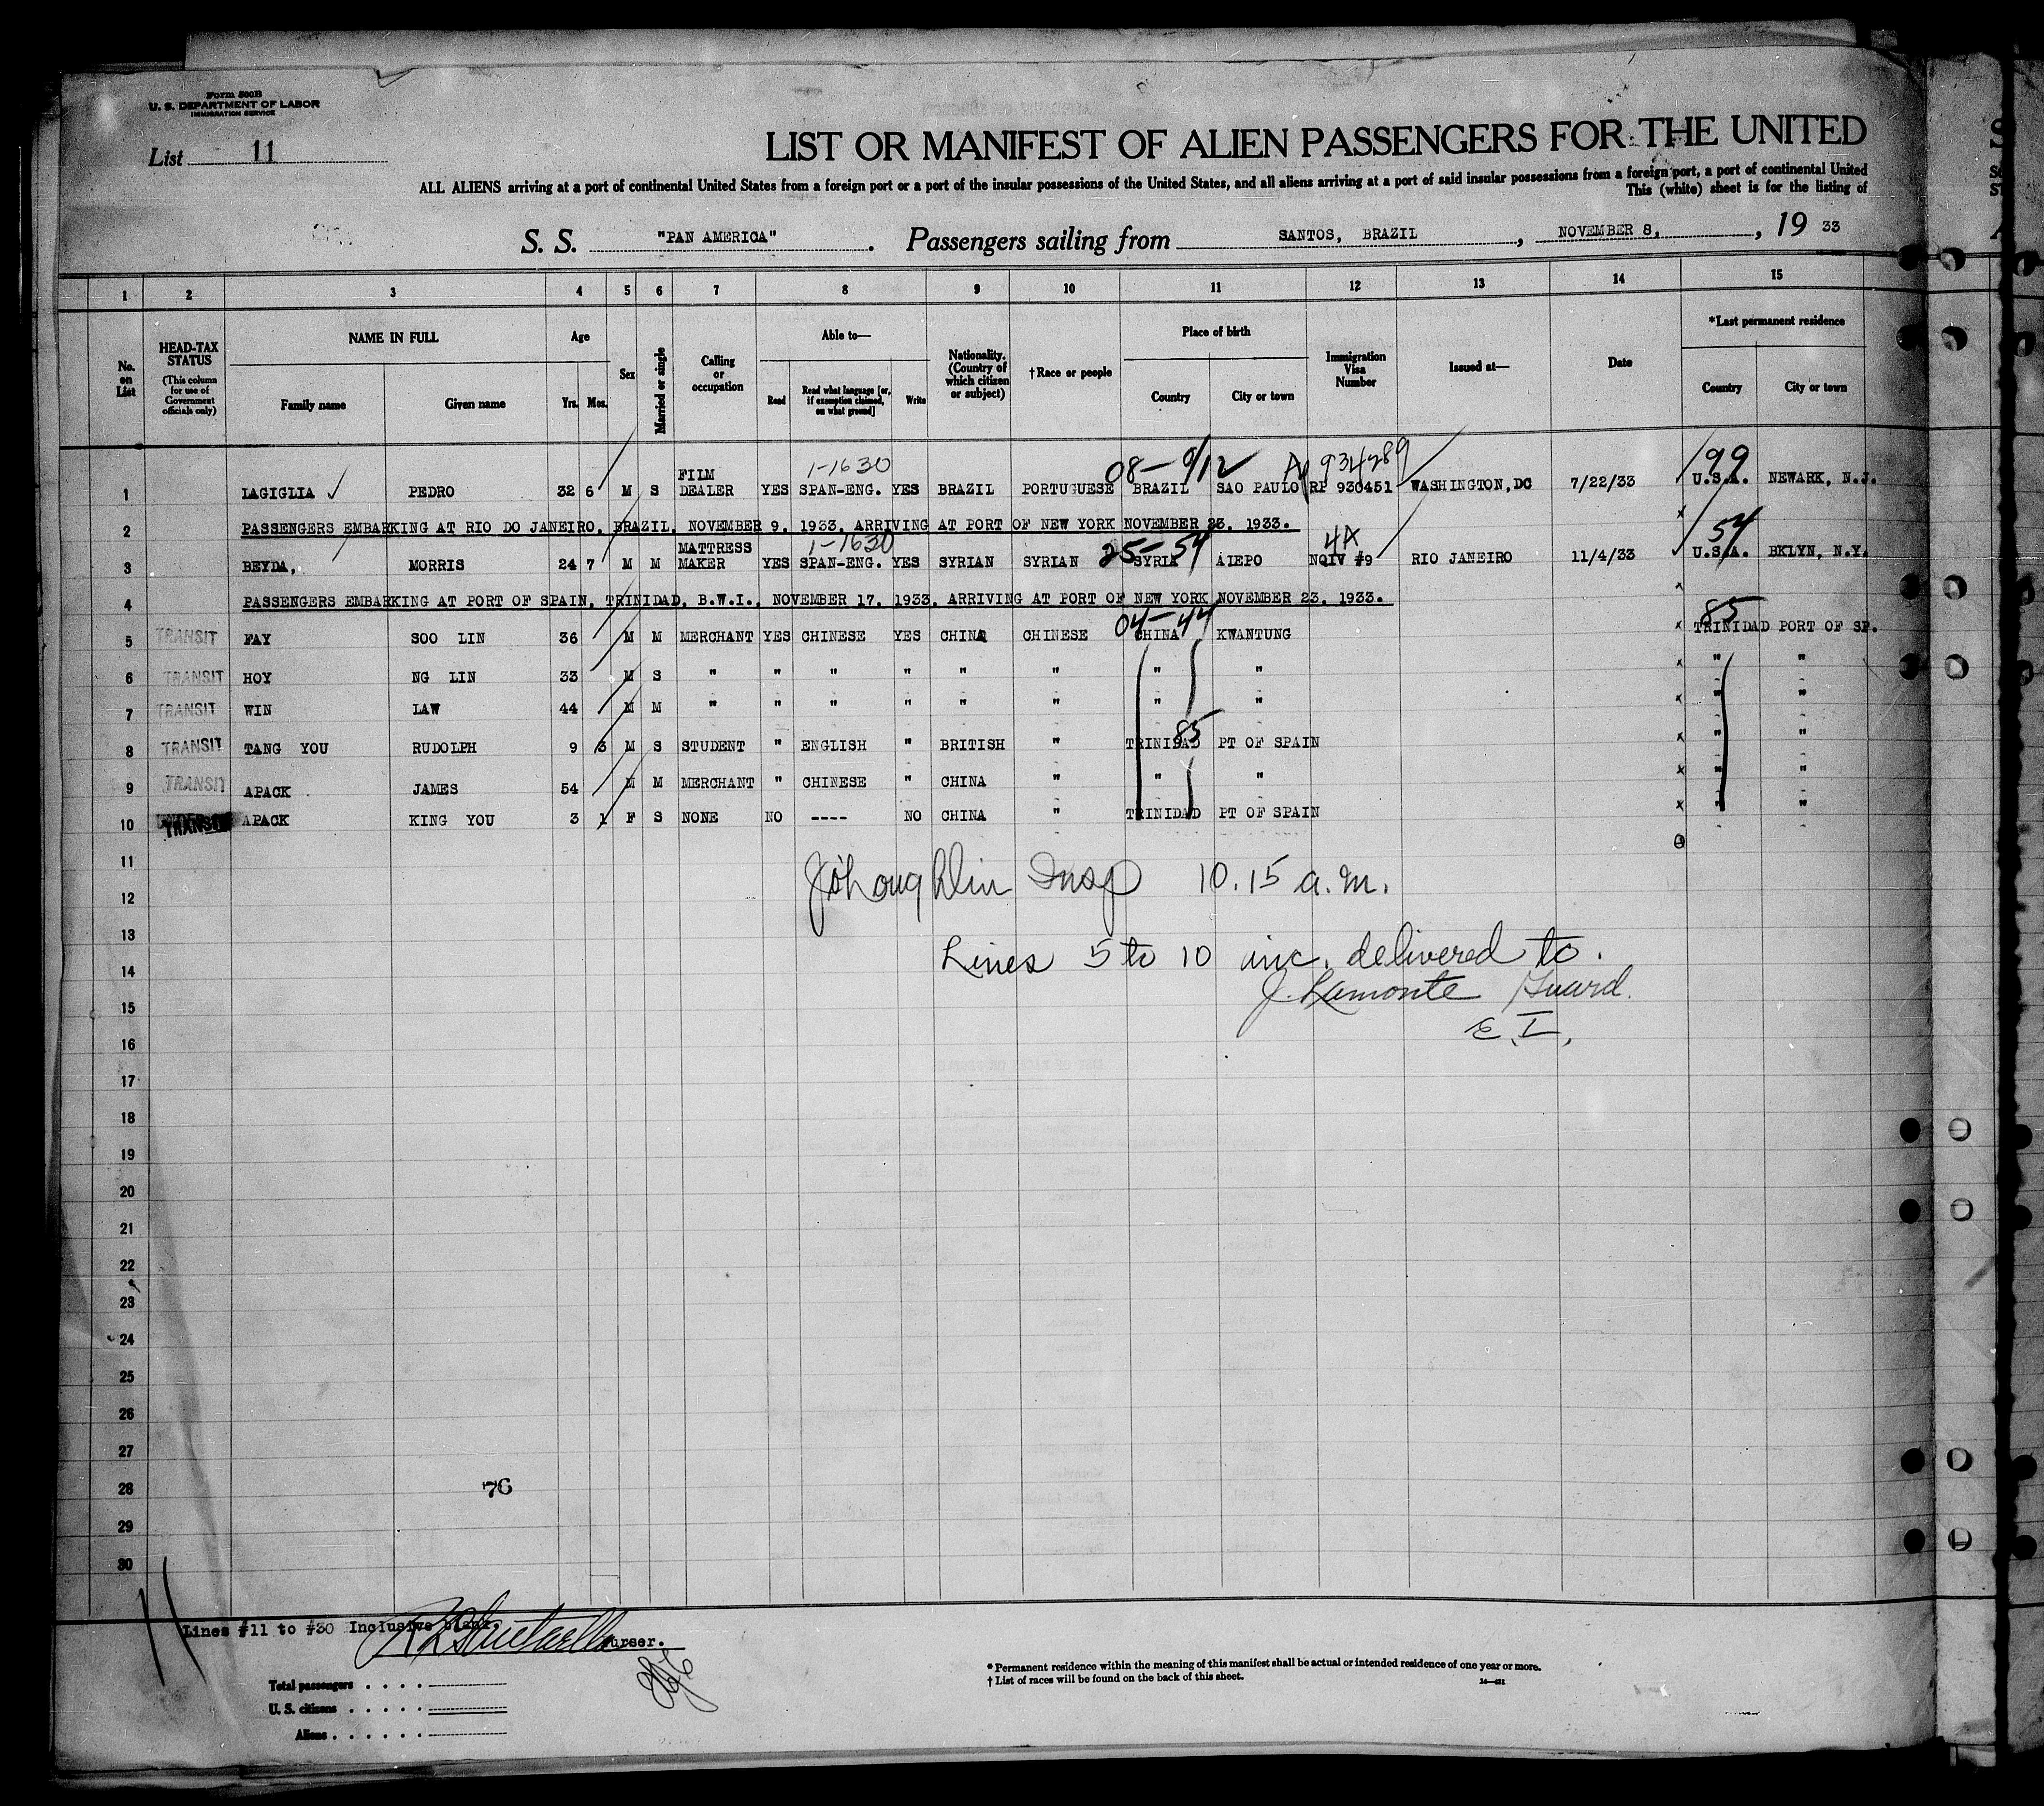 Form 500B
U. S. DEPARTMENT OF LABOR
IMMIGRATION SERVICE
List 11
LIST OR MANIFEST OF ALIEN PASSENGERS FOR THE UNITED
ALL ALIENS arriving at a port of continental United States from a foreign port or a port of the insular possessions of the United States, and all aliens arriving at a port of said insular possessions from a foreign port, a port of continental United
This (white) sheet is for the listing of
S. S. "PAN AMERICA". Passengers sailing from SANTOS, BRAZIL, NOVEMBER 8, , 19 33
1 2 3 4 5 6 7 8 9 10 11 12 13 14 15
No. on List HEAD-TAX STATUS (This column for use of Government officials only) NAME IN FULL Family name Given name Age Yrs. Mos. Sex Married or single Calling or occupation Able to— Read Read what language [or, if exemption claimed, on what ground] Write Nationality. (Country of which citizen or subject) †Race or people Place of birth Country City or town Immigration Visa Number Issued at— Date *Last permanent residence Country City or town
1-1630 08-0/12 934289 99
1 LAGIGLIA PEDRO 32 6 M S FILM DEALER YES SPAN-ENG. YES BRAZIL PORTUGUESE BRAZIL SAO PAULO RP 930451 WASHINGTON,DC 7/22/33 U.S.A. NEWARK, N.J.
2 PASSENGERS EMBARKING AT RIO DO JANEIRO, BRAZIL, NOVEMBER 9, 1933, ARRIVING AT PORT OF NEW YORK NOVEMBER 23, 1933.
1-1630 25-54 4A 54
3 BEYDA, MORRIS 24 7 M M MATTRESS MAKER YES SPAN-ENG. YES SYRIAN SYRIAN SYRIA ALEPO NQIV #9 RIO JANEIRO 11/4/33 U.S.A. BKLYN, N.Y.
4 PASSENGERS EMBARKING AT PORT OF SPAIN, TRINIDAD, B.W.I., NOVEMBER 17, 1933, ARRIVING AT PORT OF NEW YORK NOVEMBER 23, 1933.
04-44 85
5 TRANSIT FAY SOO LIN 36 M M MERCHANT YES CHINESE YES CHINA CHINESE CHINA KWANTUNG TRINIDAD PORT OF SP.
6 TRANSIT HOY NG LIN 33 M S " " " " " " " " " "
7 TRANSIT WIN LAW 44 M M " " " " " " " " " "
85
8 TRANSIT TANG YOU RUDOLPH 9 3 M S STUDENT " ENGLISH " BRITISH " TRINIDAD PT OF SPAIN " "
9 TRANSIT APACK JAMES 54 M M MERCHANT " CHINESE " CHINA " " " " "
10 TRANSIT APACK KING YOU 3 1 F S NONE NO ---- NO CHINA " TRINIDAD PT OF SPAIN " "
11
12
13
14
15
16
17
18
19
20
21
22
23
24
25
26
27
28
29
30
J. O'Loughlin Insp 10.15 a.m.
Lines 5 to 10 inc. delivered to.
J. Lamonte Guard.
E.I.
76
Lines #11 to #30 Inclusive blank.
Purser.
Total passengers
U. S. citizens
Aliens
* Permanent residence within the meaning of this manifest shall be actual or intended residence of one year or more.
† List of races will be found on the back of this sheet.